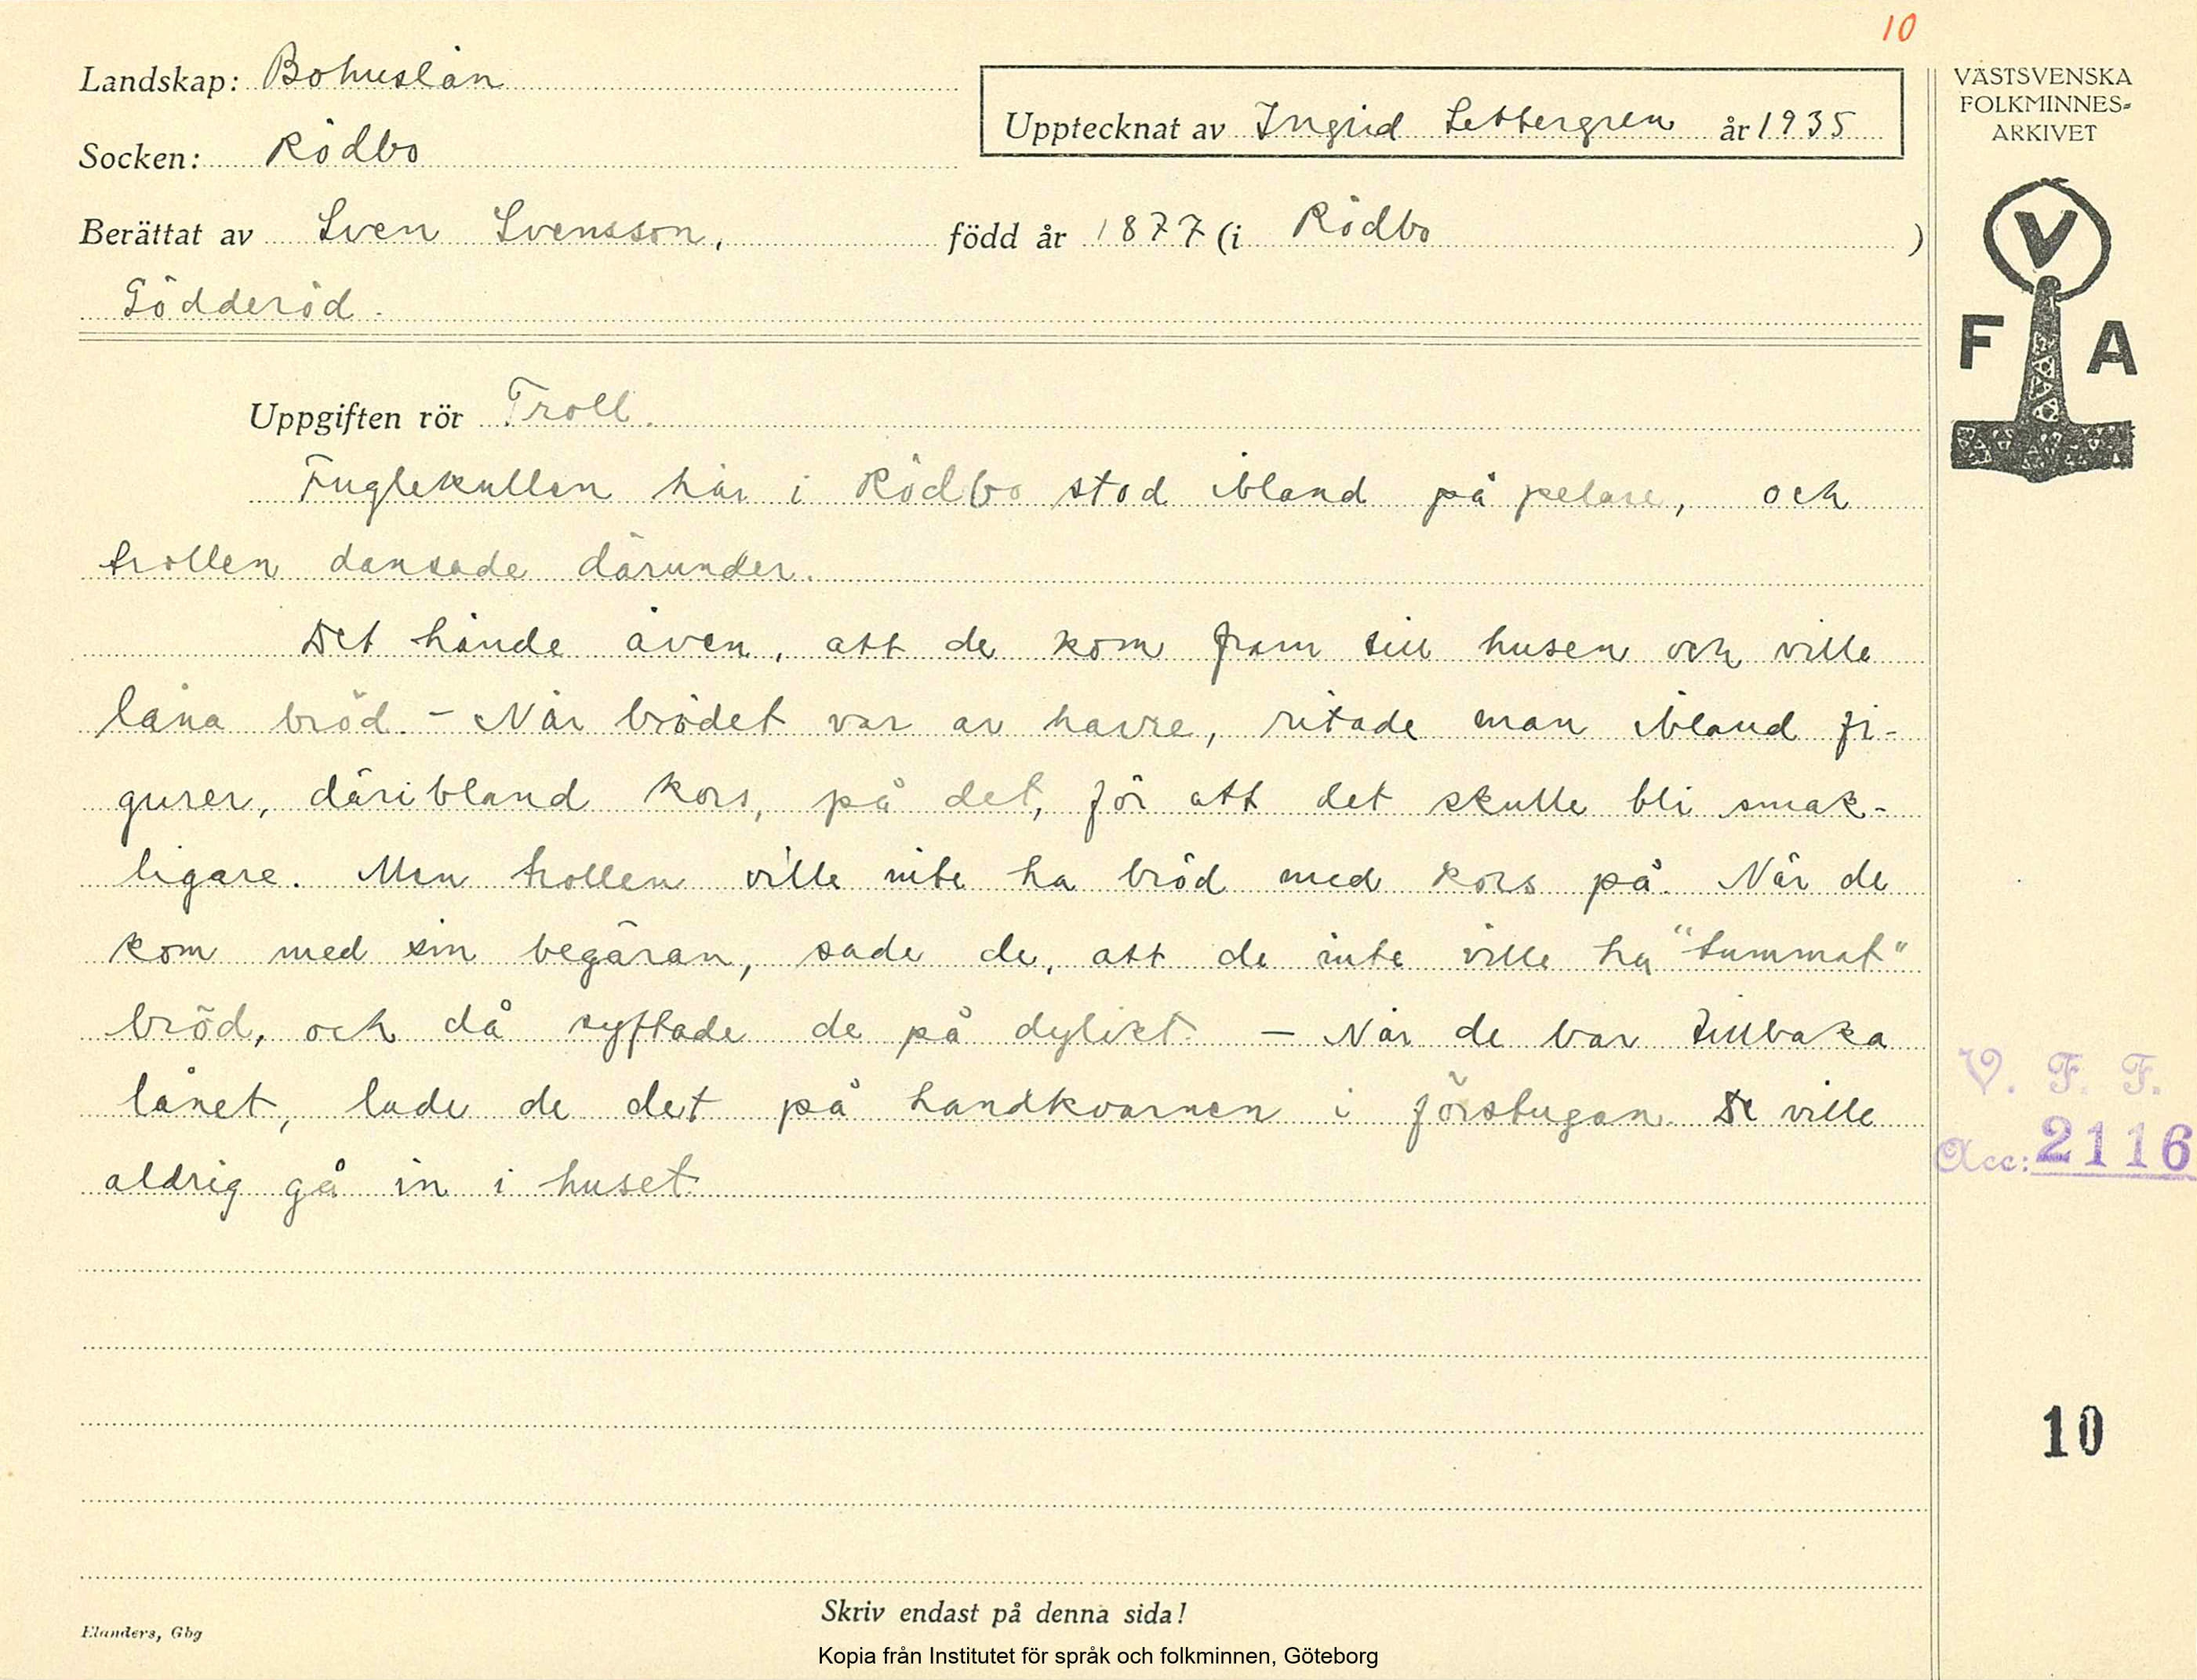 10
Landskap: Bohuslän
Socken: Rödbo
Upptecknat av Ingrid Settergren år 1935
Berättat av Sven Svensson, född år 1877 (i Rödbo )
Gödderöd.
Uppgiften rör Troll.
Fuglekullen här i Rödbo stod ibland på pelare, och
trollen dansade därunder.
Det hände även, att de kom fram till husen och ville
låna bröd. - När brödet var av havre, ritade man ibland fi-
gurer, däribland kors, på det, för att det skulle bli smak-
ligare. Men trollen ville inte ha bröd med kors på. När de
kom med sin begäran, sade de, att de inte ville ha "tummat"
bröd, och då syftade de på dylikt. - När de bar tillbaka
lånet, lade de det på handkvarnen i förstugan. De ville
aldrig gå in i huset.
Skriv endast på denna sida!
Elanders, Gbg
Kopia från Institutet för språk och folkminnen, Göteborg
VÄSTSVENSKA
FOLKMINNES-
ARKIVET
V
F A
V. F. F.
Acc: 2116
10